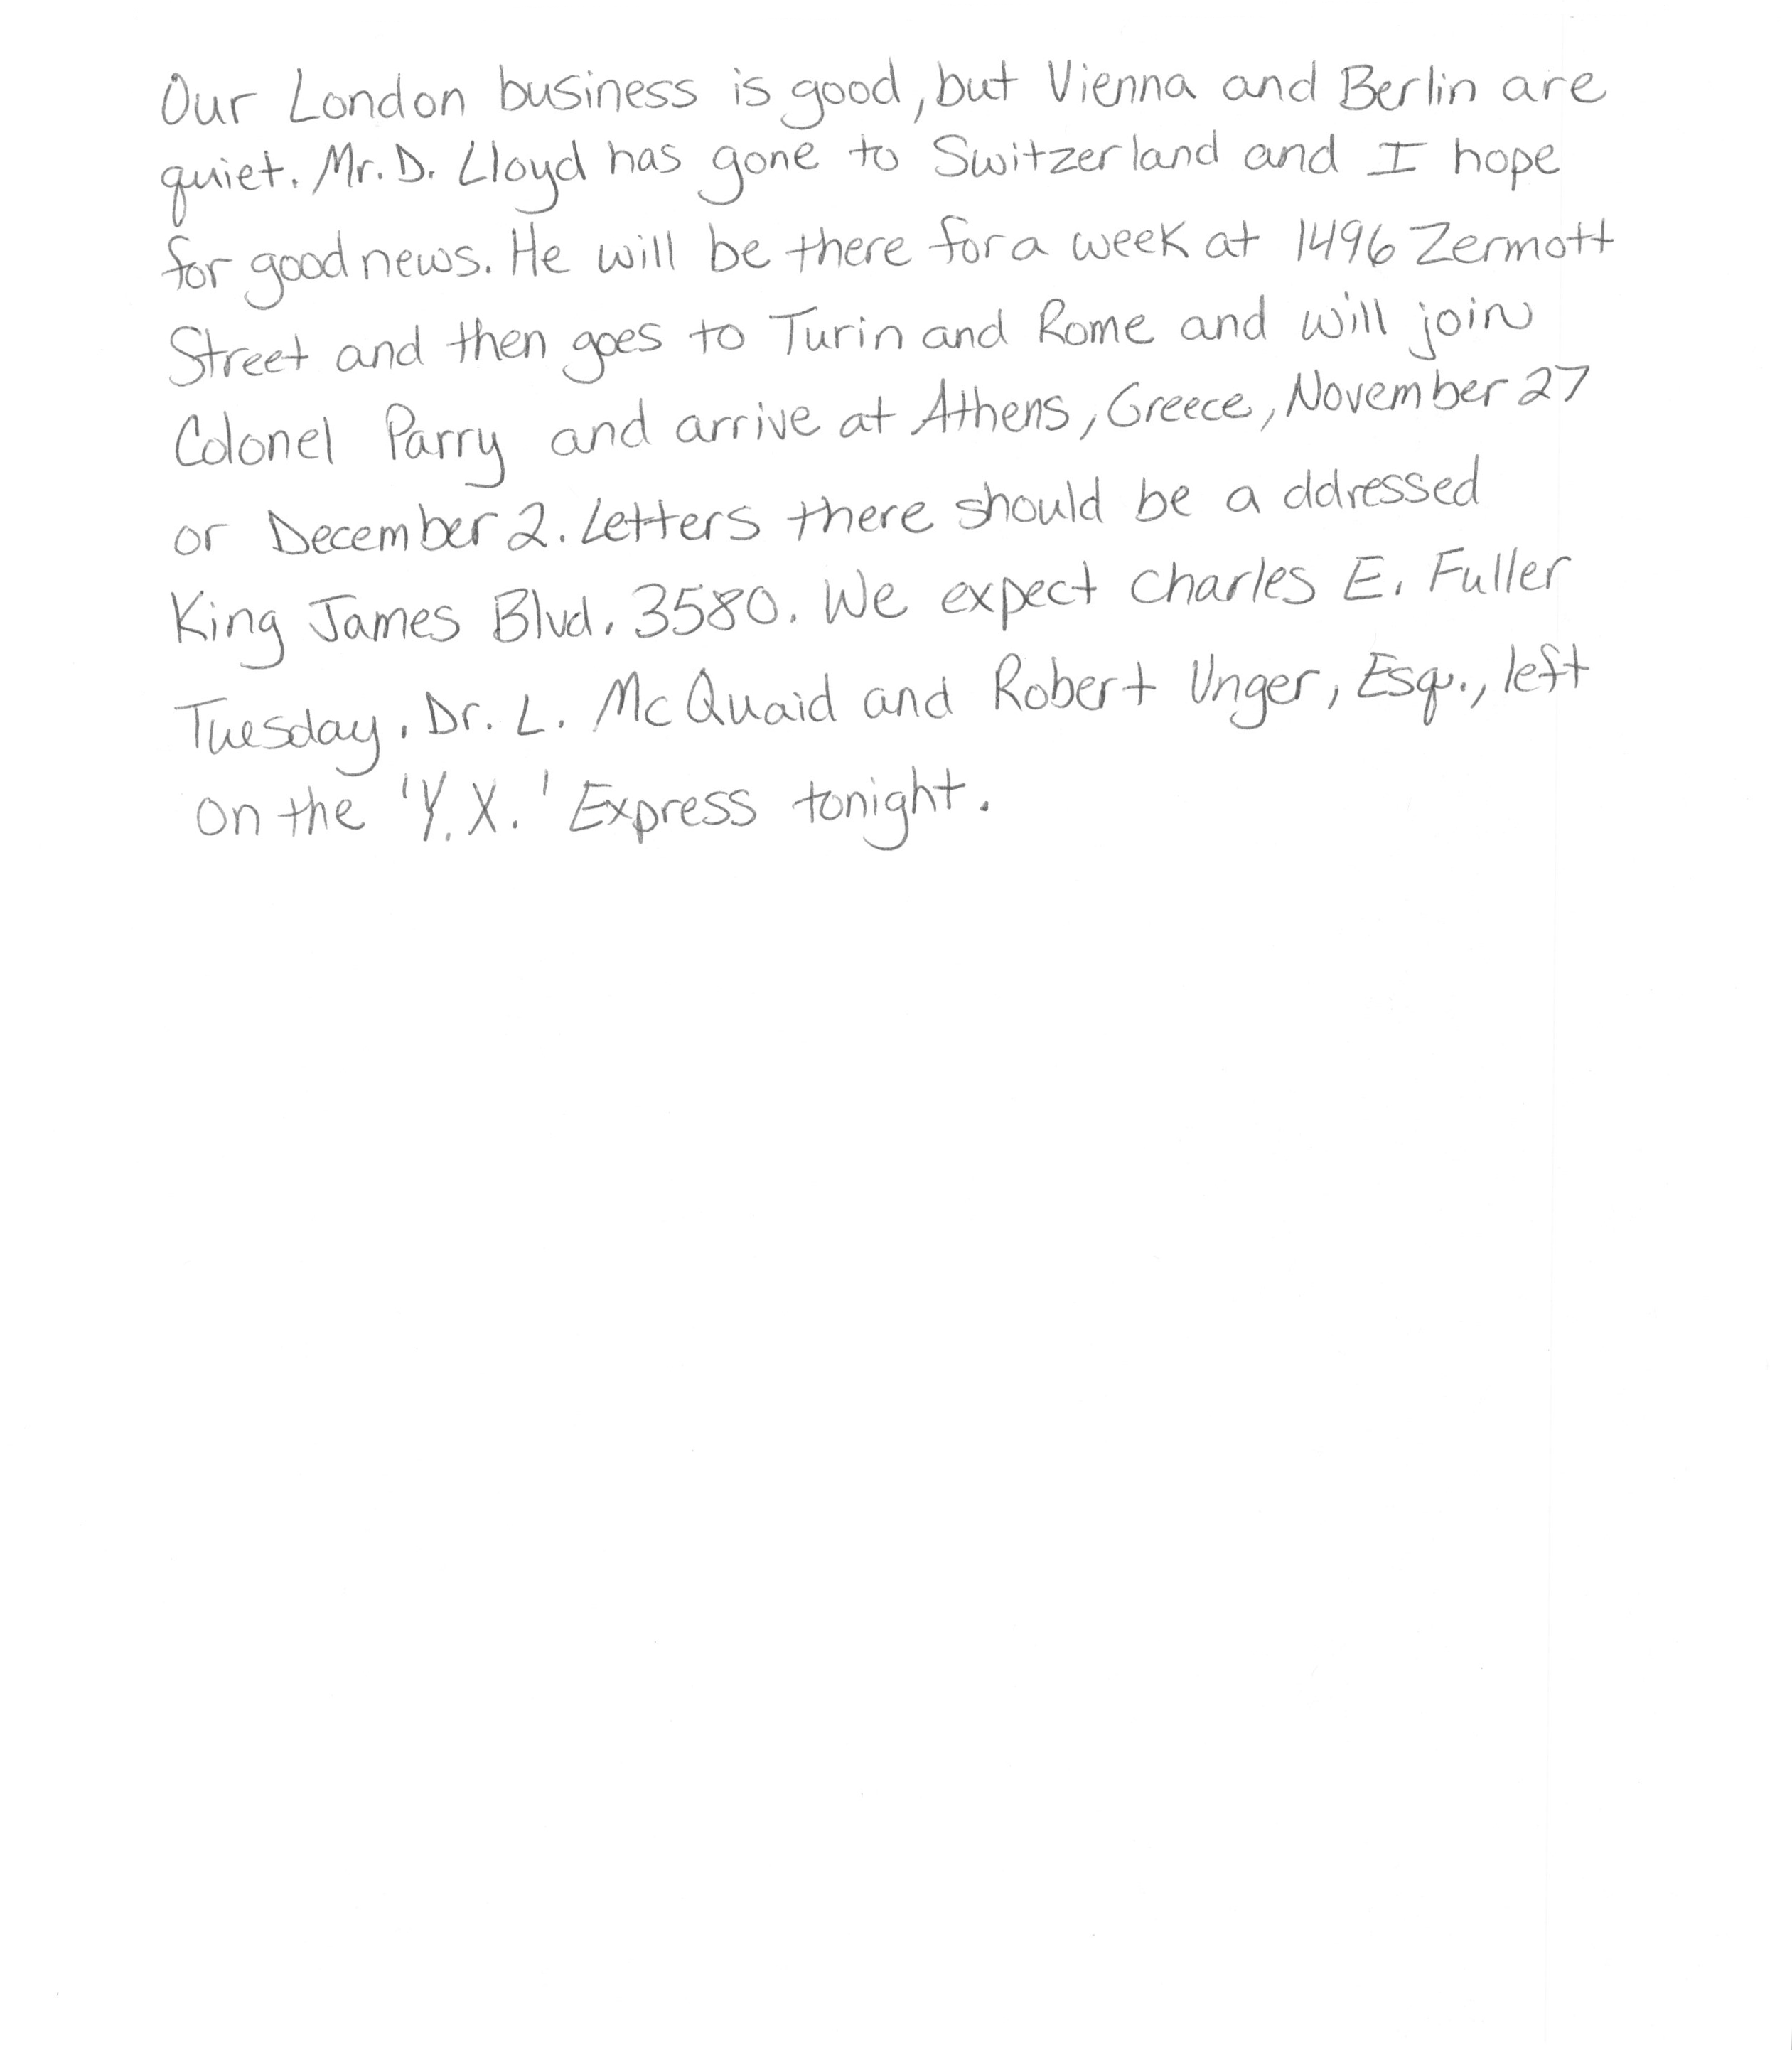 Our London business is good, but Vienna and Berlin are
quiet. Mr. D. Lloyd has gone to Switzerland and I hope
for good news. He will be there for a week at 1496 Zermott
Street and then goes to Turin and Rome and will join
Colonel Parry and arrive at Athens, Greece, November 27
or December 2. Letters there should be addressed
King James Blvd. 3580. We expect Charles E. Fuller
Tuesday. Dr. L. McQuaid and Robert Unger, Esq., left
on the 'Y.X.' Express tonight.